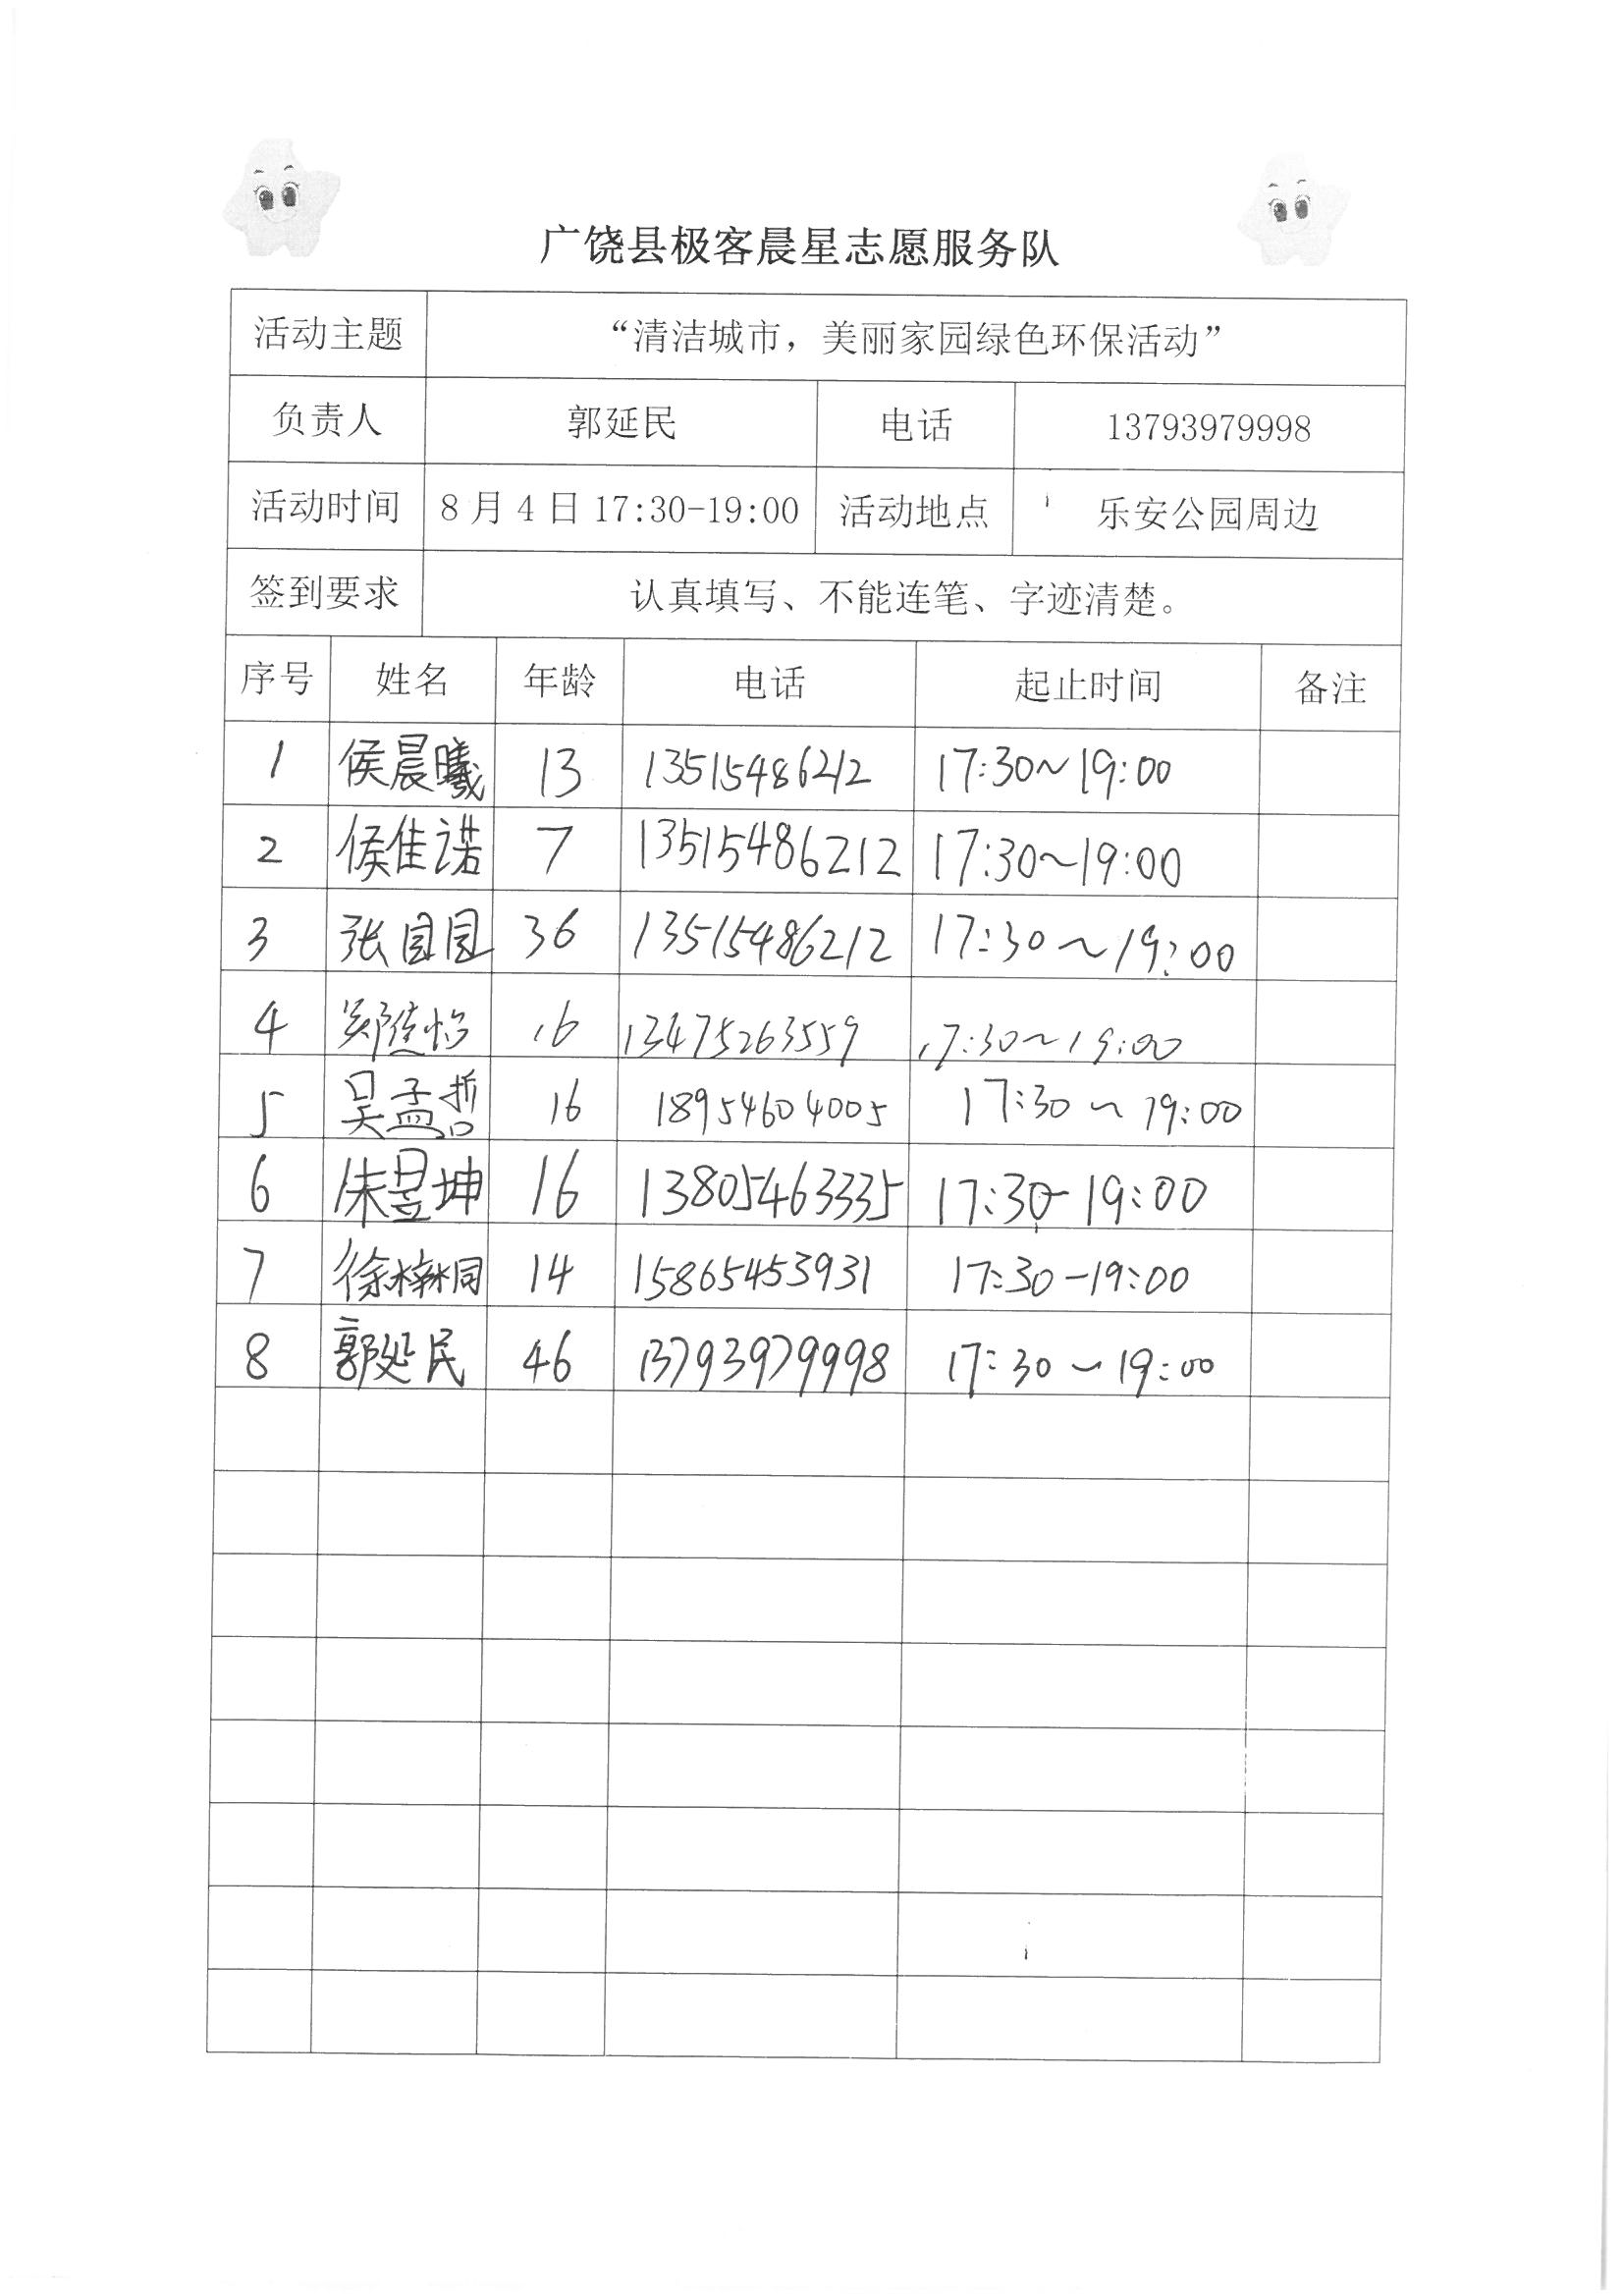 广饶县极客晨星志愿服务队
活动主题 “清洁城市，美丽家园绿色环保活动”
负责人 郭延民 电话 13793979998
活动时间 8月4日17:30-19:00 活动地点 乐安公园周边
签到要求 认真填写、不能连笔、字迹清楚。
序号 姓名 年龄 电话 起止时间 备注
1 侯晨曦 13 13515486212 17:30~19:00
2 侯佳诺 7 13515486212 17:30~19:00
3 张园园 36 13515486212 17:30~19:00
4 16 13475263559 17:30~19:00
5 吴孟哲 16 18954604005 17:30~19:00
6 朱昱坤 16 13805463335 17:30-19:00
7 徐梓桐 14 15865453931 17:30-19:00
8 郭延民 46 13793979998 17:30~19:00